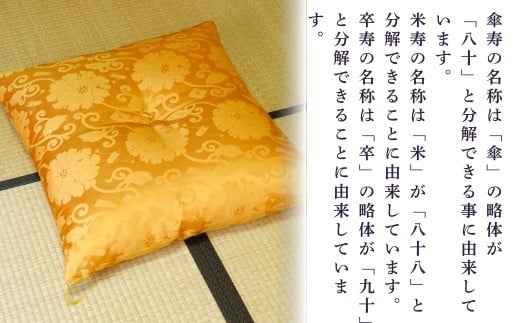 傘寿の名称は「傘」の略体が
「八十」と分解できる事に由来して
います。
米寿の名称は「米」が「八十八」と
分解できることに由来しています。
卒寿の名称は「卒」の略体が「九十」
と分解できることに由来していま
す。